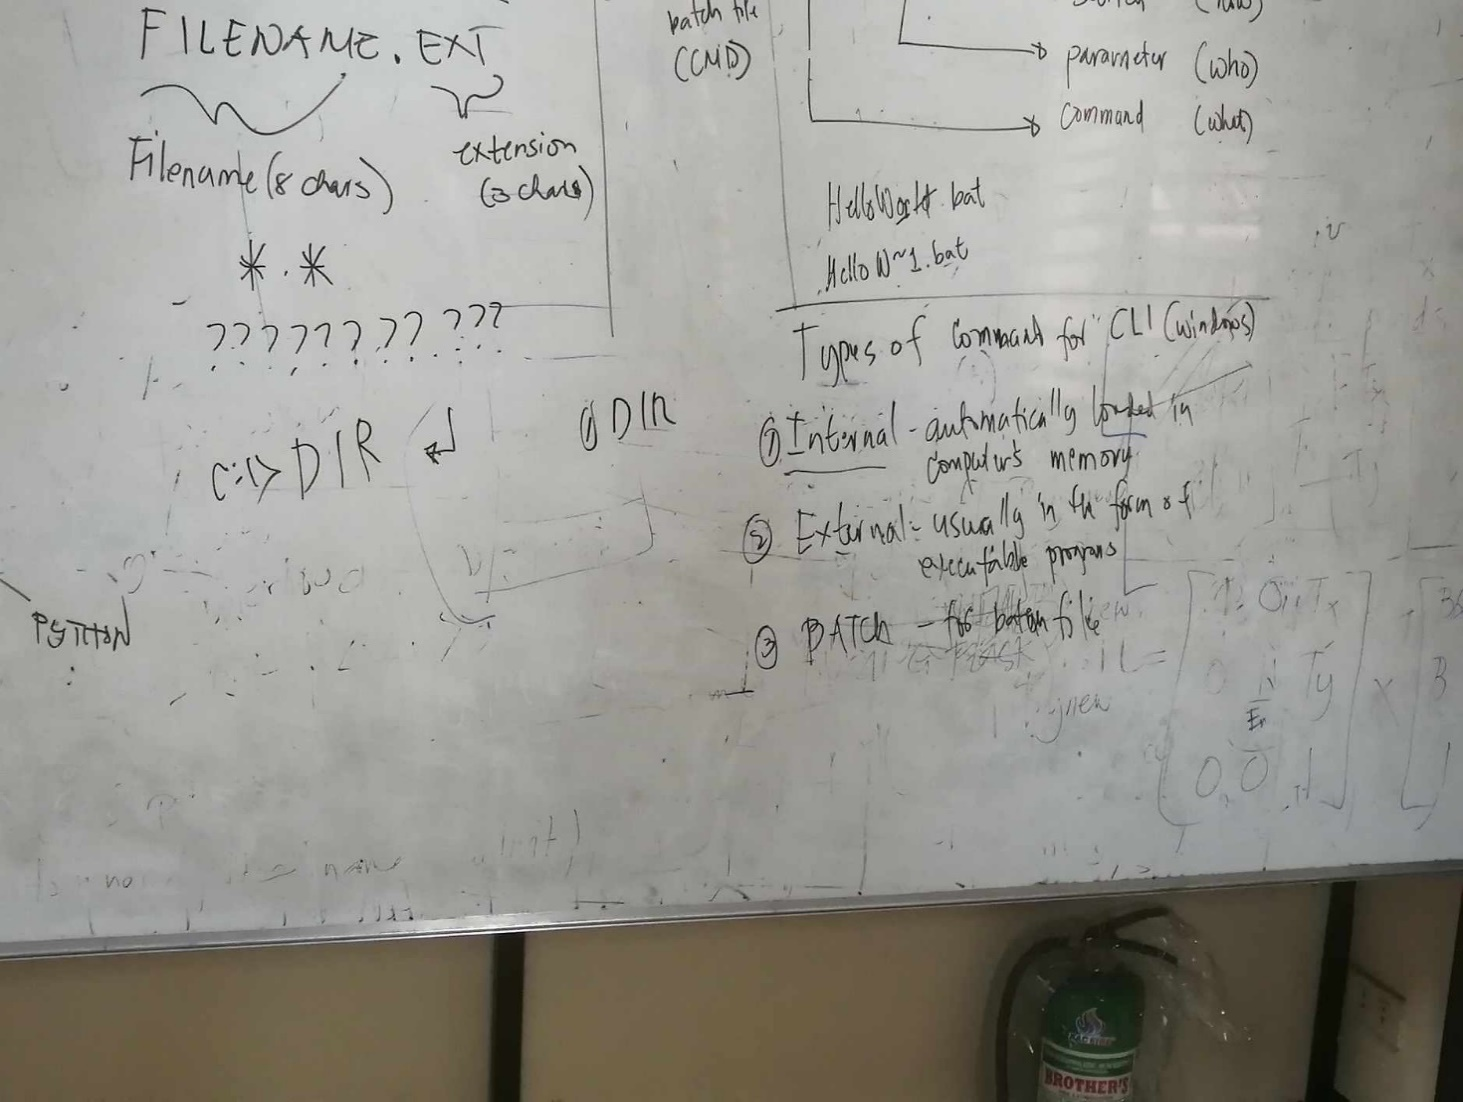 FILENAME.EXT
Filename (8 chars)
extension
(3 chars)
*.*
???????? ???
C:\> DIR ↵
① DIR
PYTHON
batch file
(CMD)
parameter (who)
command (what)
.bat
HelloW~1.bat
Types of command for CLI (windows)
① Internal - automatically loaded in
computer's memory
② External - usually in the form of
executable programs
③ BATCH - for batch file
ynew
no
name
BROTHER'S